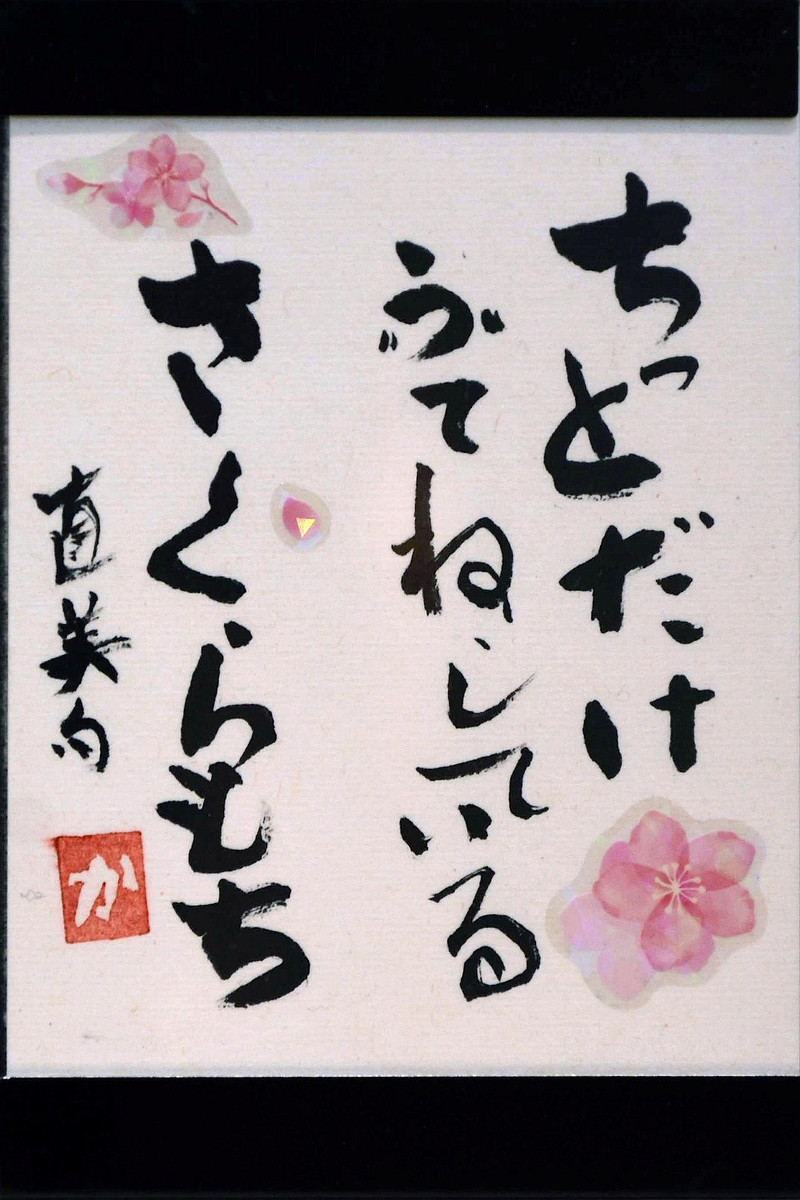 ちっとだけ
ふてねしている
さくらもち
直美句
か